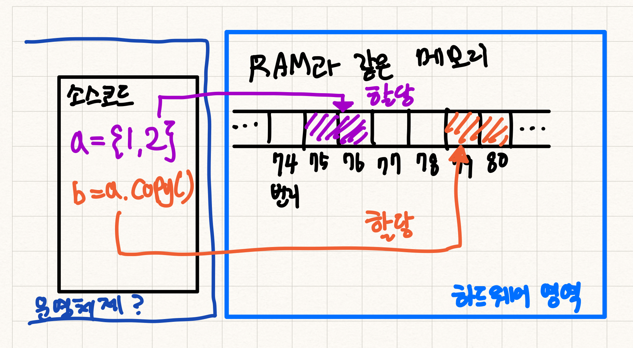 소스코드
a={1,2}
b=a.copy()
운영체제?
RAM과 같은 메모리
할당
... ...
74 75 76 77 78 79 80
번지
할당
하드웨어 영역